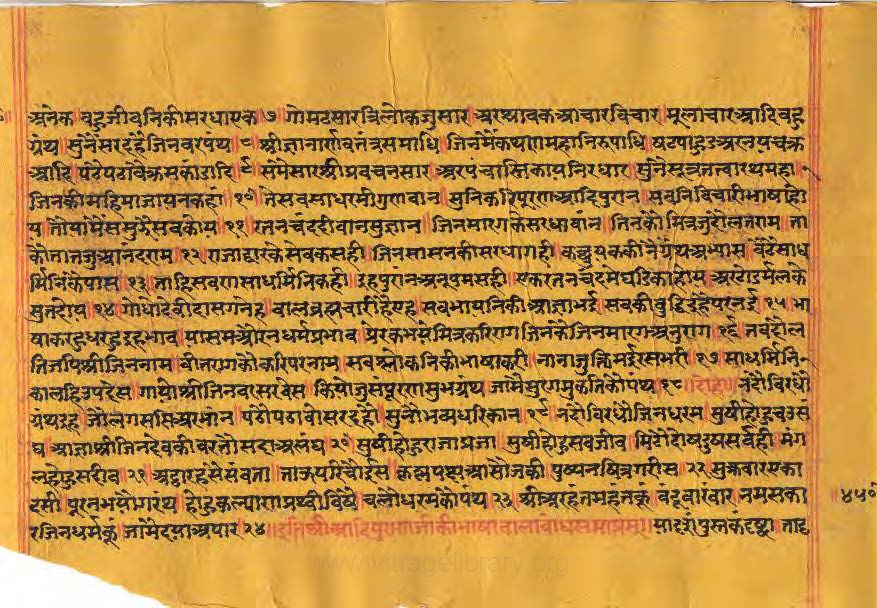 अनेक बहुजीवनिकीसरधाएक ७ गोमटसारत्रिलोकजुसार अरश्रावकआचारविचार मूलाचारआदिबहु
ग्रंथ सुनेसरदहेजिनवरपंथ ८ श्रीज्ञानार्णव समाधि जिनमैंकथाणमहानिरुपाधि षटपाहुडअरनयचक्र
आदि पढेपढावै ९ समैसारश्रीप्रवचनसार अरपंचास्तिकायनिरधार सुनेसूत्रतत्त्वारथमहा
जिनकीमहिमाजायनकहा १० तेसबसाधरमीगुणवान सुनिकरिपूरणआदिपुरान सबनिविचारीभाषाहो
य तौयामैंसमुझैसबकोय ११ रतनचंददीवानसुज्ञान जिनमारगकेसरधावान तिनकौमित्रजुदौलतराम ता
कौतातजुआनंदराम १२ राजाद्वारकेसेवकसही जिनसासनकीसरधागही कछुयककीनेग्रंथअभ्यास बैठेसाध
र्मिनिकेपास १३ इहपुरानअनुपमसही एकरतनचंदमेघडिकाहोय अर
सुतहोय १४ गोधोदेवीदाससनेह बालब्रह्मचारीहैएह सबभायनिकीआज्ञाभई सबकीबुद्धि १५ भा
षाकरहुधरहुइहभाव यासमऔरनधर्मप्रभाव प्रेरकभयेमित्रकरिराग जिनकैजिनमारगअनुराग १६ तबदौल
तिजपिश्रीजिननाम वीतरागकौकरिपरनाम सबश्लोकनिकीभाषाकरी नानाजुक्तिमईरसभरी १७ साधर्मिनि
कालहिउपदेस गायोश्रीजिनवरसरवेस कियोजुसंपूरणसुभग्रंथ जामैसुरगमुकतिकोपंथ १८ दोहा नंदोविरधो
ग्रंथइह जौलगससिअरभान पढोपढावोसरदहो सुनोभव्यधरिकान १९ नंदोविरधोजिनधरम सुषीहोहुचउसं
घ आज्ञाश्रीजिनदेवकी वरतौसदाअलंघ २० सुषीहोहुराजाप्रजा सुषीहोहुसबजीव मिटोदोषदुषसर्वही मंग
लहोहुसदीव २१ अट्ठारहसैसंवता ताऊपरिचौईस कृष्णपक्षआसौजकी पुष्यनषित्रगरीस २२ सुक्रवारएका
दसी पूरनभयोग्रंथ होहुकल्याणप्रथ्वीविषै चलौधरमकौपंथ २३ श्रीअरहंतमहंतकूं वंदूवारंवार नमसका ४५०
रजिनधर्मकूं जामैदयाअपार २४ इतिश्रीआदिपुराणजीकीभाषाबालाबोधसमाप्तम् यादृशंपुस्तकंदृष्ट्वा तादृ
www.vitragelibrary.org